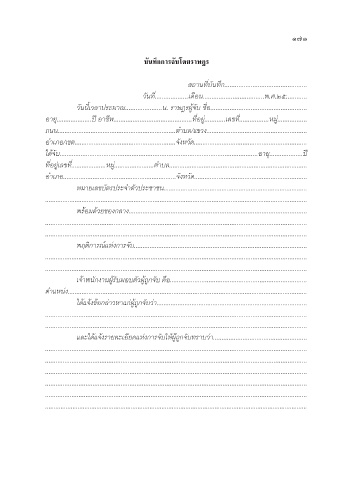 ๑๗๑
บันทึกการจับโดยราษฎร
สถานที่บันทึก..........................................
วันที่................เดือน..............................พ.ศ.๒๕...........
วันนี้เวลาประมาณ...................น. ราษฎรผู้จับ ชื่อ..............................................
อายุ.................ปี อาชีพ......................................ที่อยู่..........เลขที่..................หมู่...............
ถนน.........................................................ตำบล/แขวง.................................................
อำเภอ/เขต.................................................จังหวัด.......................................................
ได้จับ...............................................................................................อายุ................ปี
ที่อยู่เลขที่.................หมู่...................ตำบล...................................................................
อำเภอ.......................................................จังหวัด.......................................................
หมายเลขบัตรประจำตัวประชาชน.....................................................................
................................................................................................................................
พร้อมด้วยของกลาง......................................................................................
................................................................................................................................
................................................................................................................................
พฤติการณ์แห่งการจับ...................................................................................
................................................................................................................................
................................................................................................................................
เจ้าพนักงานผู้รับมอบตัวผู้ถูกจับ คือ..................................................................
ตำแหน่ง.....................................................................................................................
ได้แจ้งข้อกล่าวหาแก่ผู้ถูกจับว่า.........................................................................
................................................................................................................................
................................................................................................................................
และได้แจ้งรายละเอียดแห่งการจับให้ผู้ถูกจับทราบว่า..............................................
................................................................................................................................
................................................................................................................................
................................................................................................................................
................................................................................................................................
................................................................................................................................
................................................................................................................................